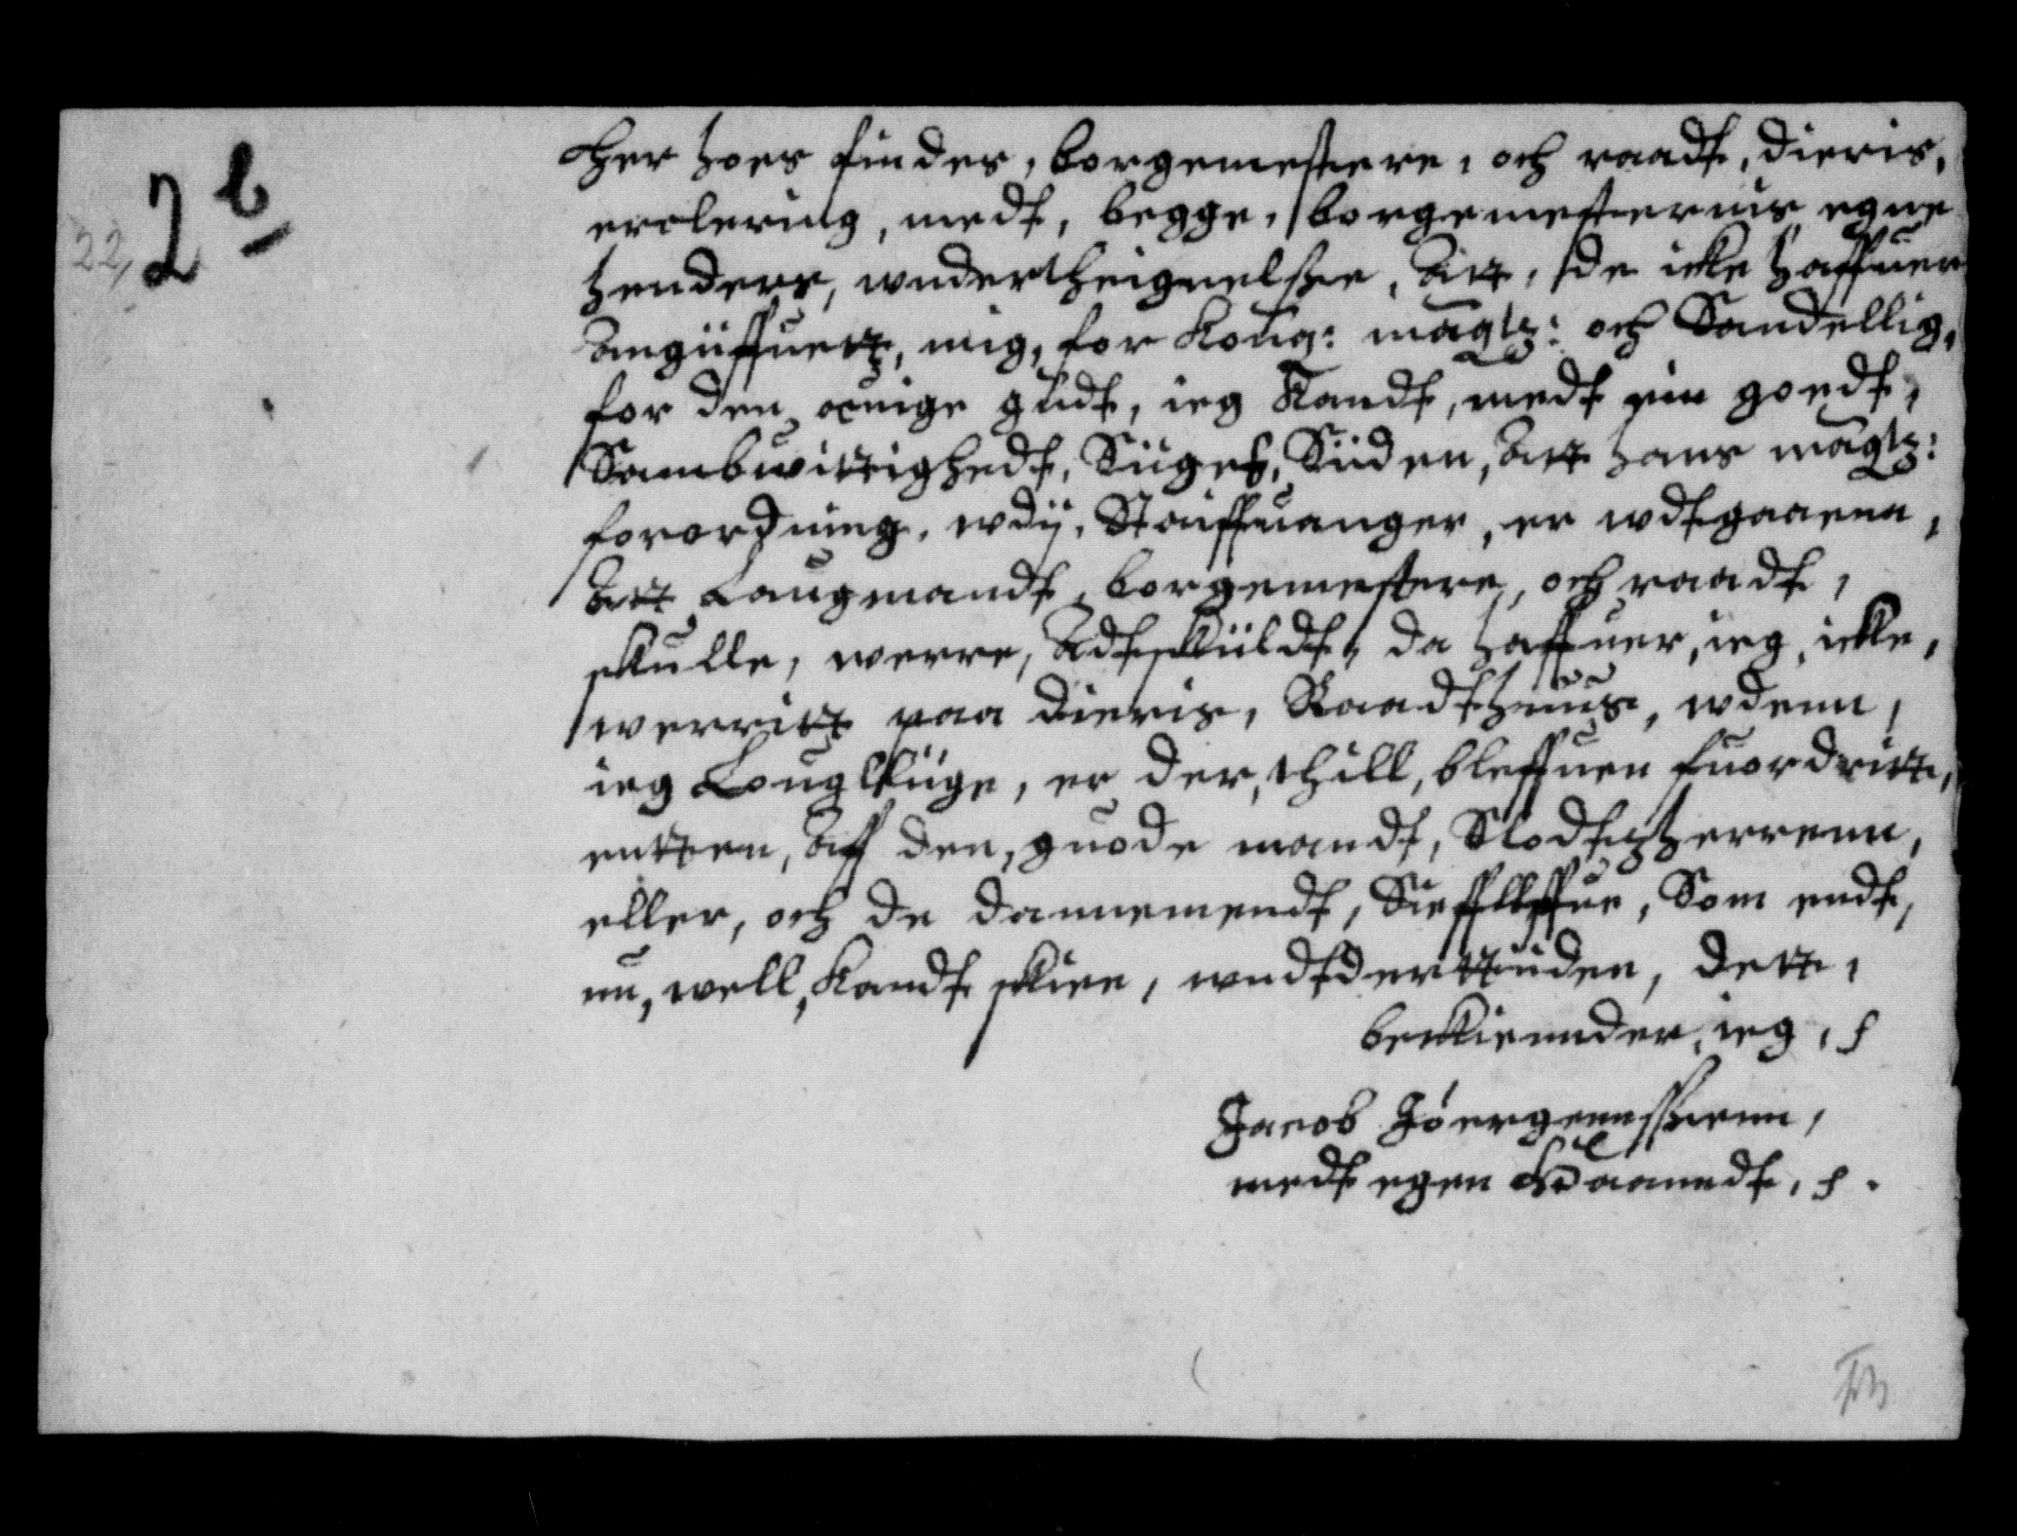 2 b
22,
Her hoes findes, borgemestere, och raadt, dieris,
erclering, medt, begge, borgemesternis egne
henders, wndertheignelsse, att, de icke haffuer
angiiffuett, mig, for Kong: magtz: och Sandellig,
for den euige gudt, ieg Kandt, medt een goedt,
Sambwittighedt, Siiges, Siiden, att hans magtz:
forordning, wdij, Stauffuanger, er wdtgaaenn,
att Laugmandt, borgemestere, och raadt,
skulle, werre, adtskiildt, da haffuer, ieg, icke,
werritt paa dieris, Raadthuus, wdenn,
ieg Louglliige, er der, thill, bleffuen fuordritt,
entten, aff den, guode mandt, Slodtzherrenn,
eller, och de dannemendt, Sieffllffue, Som endt,
nu, well, Kandt skiee, wndtdertiiden, dett,
beckiennder, ieg,
Jacob Jöergennssenn,
medt egen Haanndt,